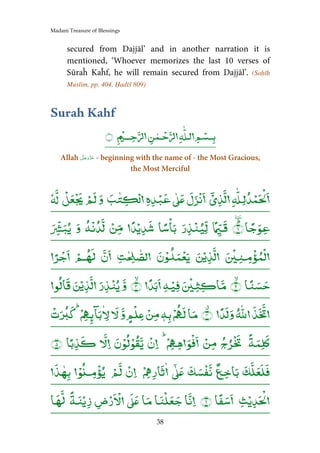 Madani Treasure of Blessings
secured from Dajjāl’ and in another narration it is
mentioned, ‘Whoever memorizes the last 10 verses of
Sūraĥ Kaĥf, he will remain secured from Dajjāl’. (Sahīh
Muslim, pp. 404, Hadīš 809)
Surah Kahf
بِسْمِ اللّٰهِ الرَّحْمٰنِ الرَّحِیْمِ
Allah عَزَّوَجَلَّ - beginning with the name of - the Most Gracious,
the Most Merciful
اَلْحَمْدُ لِلّٰهِ الَّذِیْۤ اَنْزَلَ عَلٰی عَبْدِهِ الْكِتٰبَ وَ لَمْ یَجْعَلْ لَّهٗ
عِوَجًا ﴿۱﴾ قَیِّمًا لِّیُنْذِرَ بَاْسًا شَدِیْدًا مِّنْ لَّدُنْهُ وَ یُبَشِّرَ
الْمُؤْمِنِیْنَ الَّذِیْنَ یَعْمَلُوْنَ الصّٰلِحٰتِ اَنَّ لَهُمْ اَجْرًا
حَسَنًا ﴿۲﴾ مَّاكِثِیْنَ فِیْهِ اَبَدًا ﴿۳﴾ وَّ یُنْذِرَ الَّذِیْنَ قَالُوا
اتَّخَذَ اللّٰهُ وَلَدًا ﴿۴﴾ مَا لَهُمْ بِهٖ مِنْ عِلْمٍ وَّ لَا لِاٰبَآىِٕهِمْ ؕ كَبُرَتْ
كَلِمَةً تَخْرُجُ مِنْ اَفْوَاهِهِمْ ؕ اِنْ یَّقُوْلُوْنَ اِلَّا كَذِبًا ﴿۵﴾
فَلَعَلَّكَ بَاخِعٌ نَّفْسَكَ عَلٰۤی اٰثَارِهِمْ اِنْ لَّمْ یُؤْمِنُوْا بِهٰذَا
الْحَدِیْثِ اَسَفًا ﴿۶﴾ اِنَّا جَعَلْنَا مَا عَلَی الْاَرْضِ زِیْنَةً لَّهَا
38